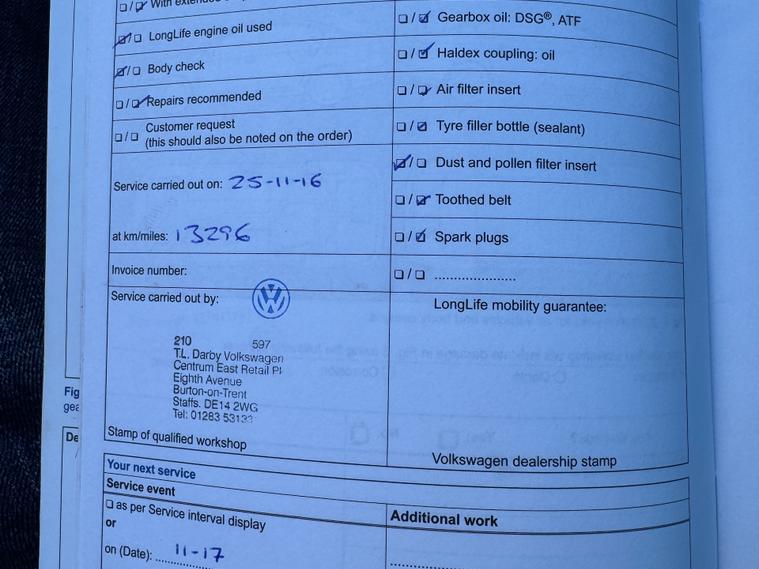 ☐ / ☑ With extended
☑ / ☐ LongLife engine oil used
☑ / ☐ Body check
☐ / ☑ Repairs recommended
☐ / ☐ Customer request
(this should also be noted on the order)
Service carried out on: 25-11-16
at km/miles: 13296
Invoice number:
Service carried out by:
210 597
T.L. Darby Volkswagen
Centrum East Retail
Eighth Avenue
Burton-on-Trent
Staffs. DE14 2WG
Tel: 01283
Stamp of qualified workshop
☐ / ☑ Gearbox oil: DSG®, ATF
☐ / ☑ Haldex coupling: oil
☐ / ☑ Air filter insert
☐ / ☑ Tyre filler bottle (sealant)
☑ / ☐ Dust and pollen filter insert
☐ / ☑ Toothed belt
☐ / ☑ Spark plugs
☐ / ☐ ......................
LongLife mobility guarantee:
Volkswagen dealership stamp
Fig
gea
De
Your next service
Service event
☐ as per Service interval display
or
on (Date): 11-17
Additional work